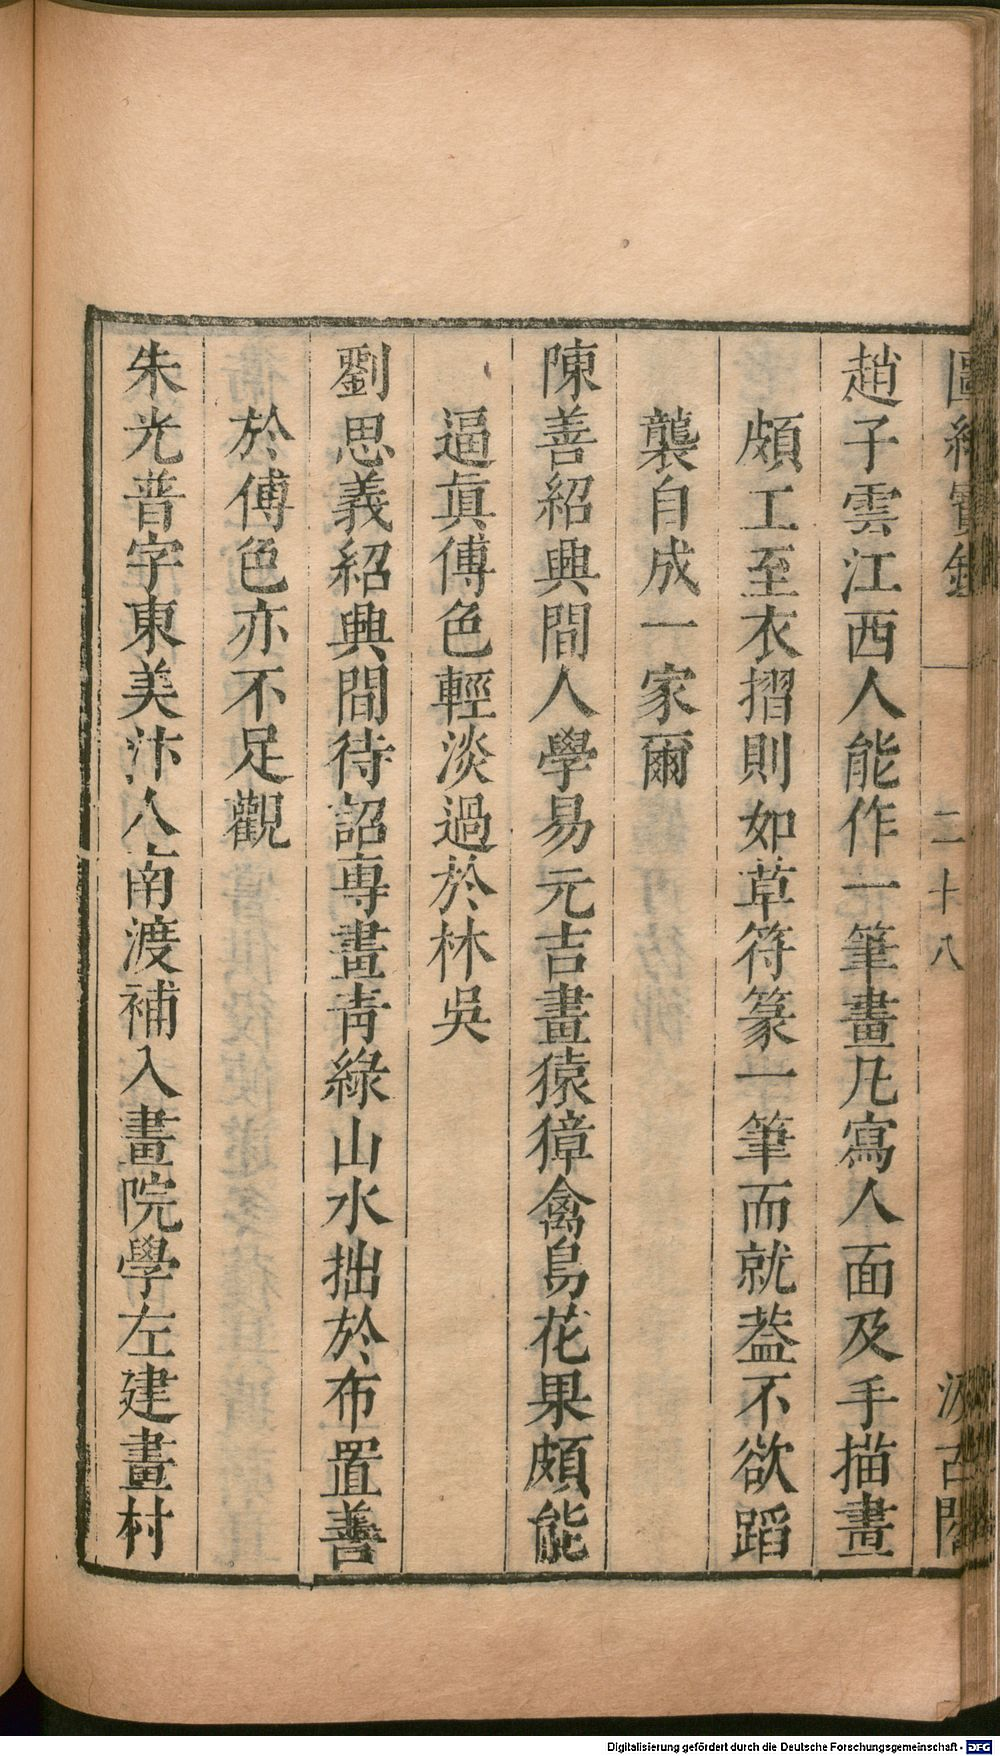 圖繪寶鑑 二十八 汲古閣
趙子雲江西人能作一筆畫凡寫人面及手描畫
頗工至衣摺則如草符篆一筆而就葢不欲蹈
襲自成一家爾
陳善紹興間人學易元吉畫猿獐禽鳥花果頗能
逼眞傅色輕淡過於林吳
劉思義紹興間待詔專畫靑綠山水拙於布置善
於傅色亦不足觀
朱光普字東美汴人南渡補入畫院學左建畫村
Digitalisierung gefördert durch die Deutsche Forschungsgemeinschaft - DFG